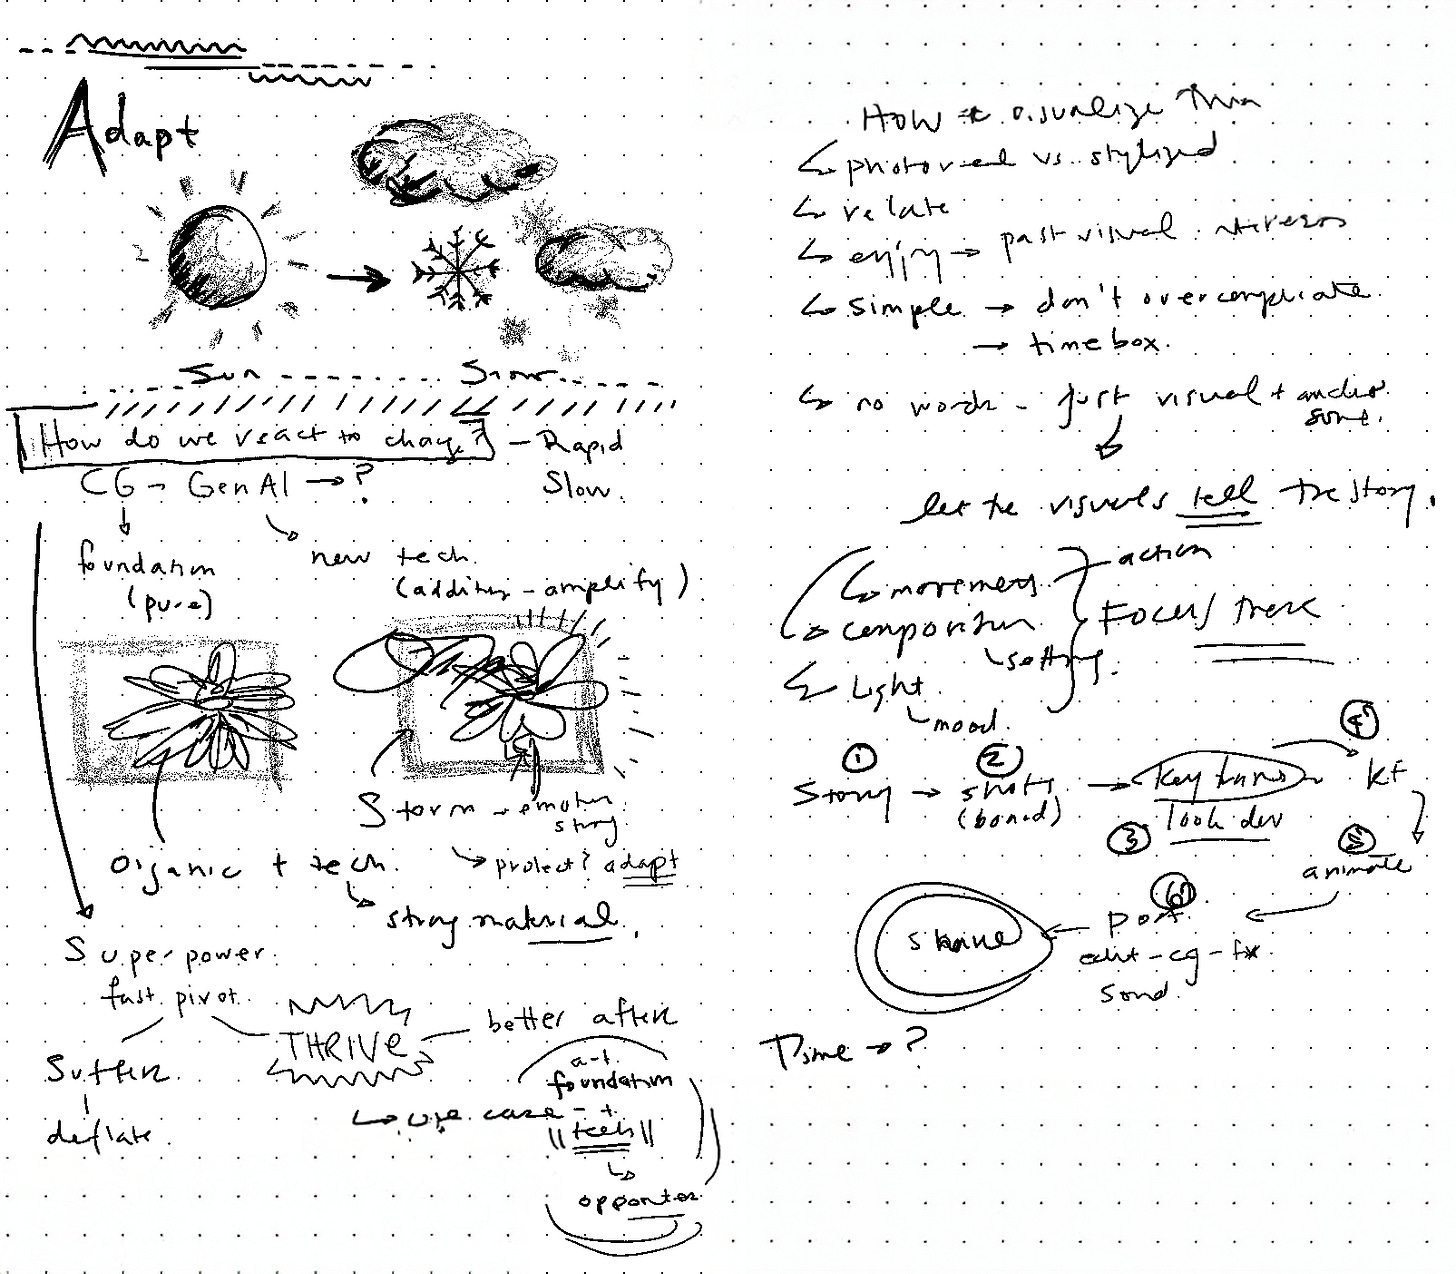 Adapt
Sun Snow
How do we react to change? - Rapid
Slow.
CG - GenAI → ?
foundation
(pure)
new tech
(additive - amplify)
Storm → emotion
story
Organic + tech.
→ protect? adapt
strong material.
Superpower
fast pivot.
THRIVE - better after
Suffer
deflate.
→ use case -
art
foundation
+
|| tech ||
How to visualize
photoreal vs. stylized
relate
enjoy → past visual
simple → don't overcomplicate.
→ time box.
no words - just visual + audio
let the visuals tell the story.
movement - action
composition
setting.
Focus/
Light
mood.
① Story → ② shots
(board)
→ ③ key
look dev
④ KF
⑤ animate
⑥ post.
edit - cg - fx
sound.
Time → ?